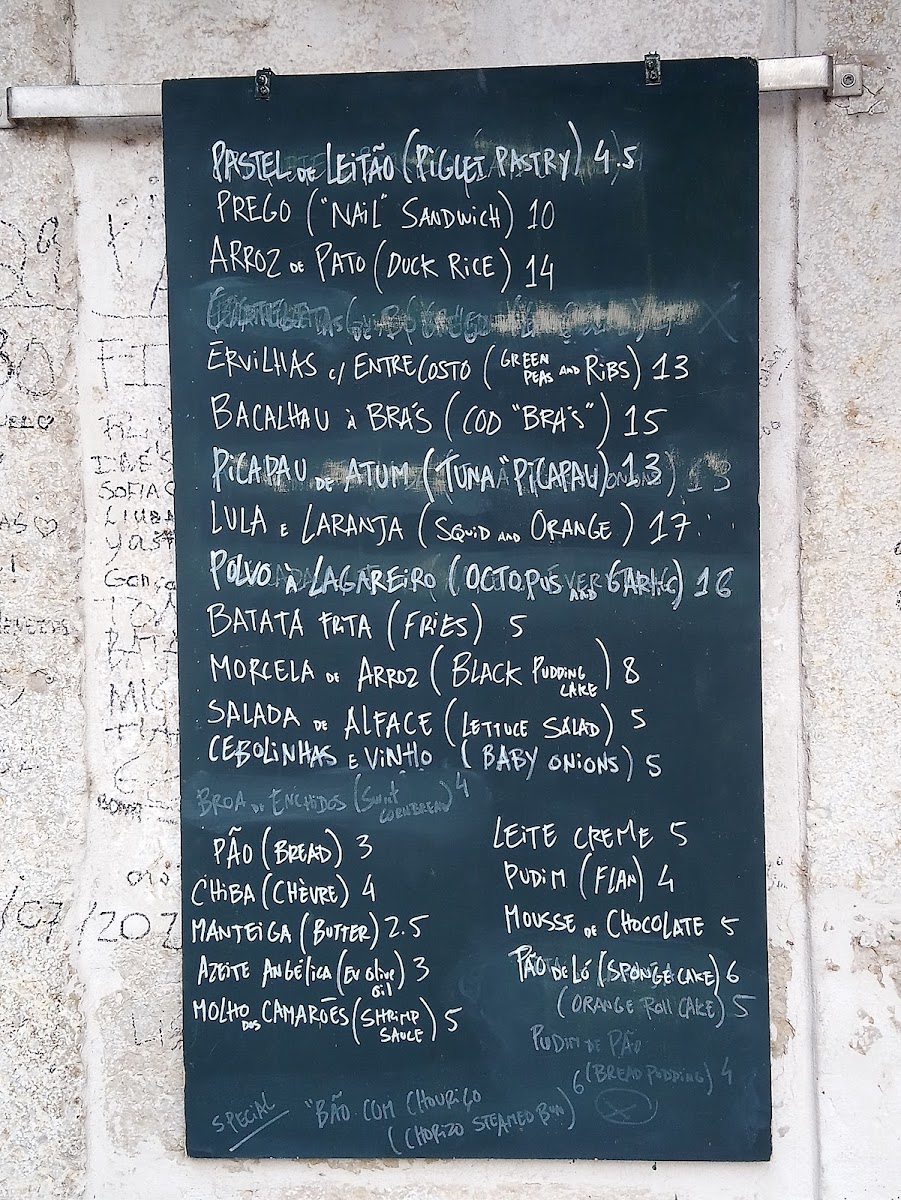 PASTEL DE LEITÃO (PIGLET PASTRY) 4.5
PREGO ("NAIL" SANDWICH) 10
ARROZ DE PATO (DUCK RICE) 14
ERVILHAS C/ ENTRECOSTO (GREEN PEAS AND RIBS) 13
BACALHAU À BRÁS (COD "BRÁS") 15
PICAPAU DE ATUM (TUNA "PICAPAU) 13
LULA E LARANJA (SQUID AND ORANGE) 17
POLVO À LAGAREIRO (OCTOPUS AND GARLIC) 16
BATATA FRITA (FRIES) 5
MORCELA DE ARROZ (BLACK PUDDING CAKE) 8
SALADA DE ALFACE (LETTUCE SALAD) 5
CEBOLINHAS E VINHO (BABY ONIONS) 5
BROA DE ENCHIDOS CORNBREAD) 4
PÃO (BREAD) 3
CHIBA (CHÈVRE) 4
MANTEIGA (BUTTER) 2.5
AZEITE ANGÉLICA (EV OLIVE OIL) 3
MOLHO DOS CAMARÕES (SHRIMP SAUCE) 5
LEITE CREME 5
PUDIM (FLAN) 4
MOUSSE DE CHOCOLATE 5
PÃO DE LÓ (SPONGE CAKE) 6
(ORANGE ROLL CAKE) 5
PUDIM DE PÃO
(BREAD PUDDING) 4
SPECIAL "BÃO COM CHOURIÇO
(CHORIZO STEAMED BUN) 6